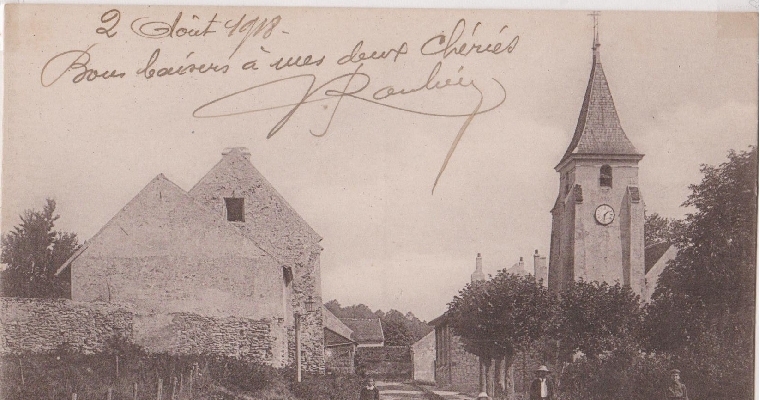 2 Août 1918-
Bons baisers à mes deux Chéries